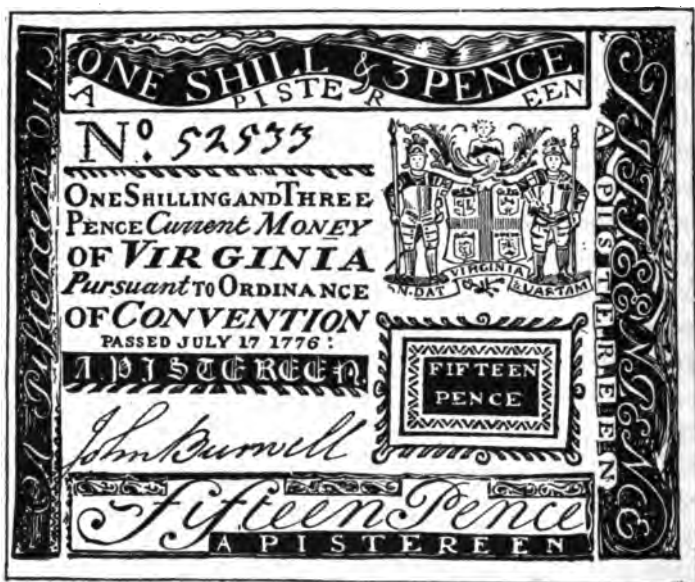 ONE SHILL & 3 PENCE
A PISTEREEN
No. 52533
ONE SHILLING AND THREE
PENCE Current MONEY
OF VIRGINIA
Pursuant TO ORDINANCE
OF CONVENTION
PASSED JULY 17 1776:
A PISTEREEN
John Burwell
EN. DAT VIRGINIA QUARTAM
FIFTEEN
PENCE
Fifteen Pence
A PISTEREEN
A Pistereen
A PISTEREEN
FIFTEEN PENCE